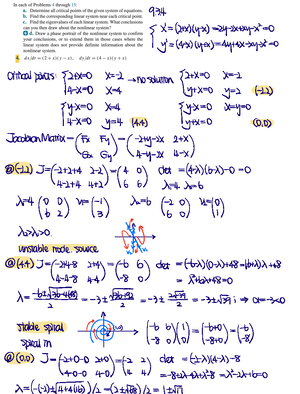 In each of Problems 4 through 15:
a. Determine all critical points of the given system of equations.
b. Find the corresponding linear system near each critical point.
c. Find the eigenvalues of each linear system. What conclusions can you then draw about the nonlinear system?
G d. Draw a phase portrait of the nonlinear system to confirm your conclusions, or to extend them in those cases where the linear system does not provide definite information about the nonlinear system.
4. dx/dt = (2 + x)(y − x), dy/dt = (4 − x)(y + x)
9.3.4
x' = (2+x)(y-x) = 2y-2x+xy-x²=0
y' = (4-x)(y+x) = 4y+4x-xy-x²=0
Critical points: 2+x=0 x=-2 → no solution
4-x=0 x=4
2+x=0 x=-2
y+x=0 y=2 (-2,2)
y-x=0 x=4
4-x=0 y=4 (4,4)
y-x=0 x=y=0
y+x=0 (0,0)
Jacobian Matrix = (Fx Fy Gx Gy) = (-2+y-2x 2+x 4-y-2x 4-x)
@(-2,2) J = (-2+2+4 2-2 4-2+4 4+2) = (4 0 6 6) det = (4-λ)(6-λ)-0 = 0
λ=4 λ=6
λ=4 (0 0 6 2) v₁=(-1 3) λ=6 (-2 0 6 0) v₂=(0 1)
λ>λ>0
unstable node. source
@(4,4) J = (-2+4-8 2+4 4-4-8 4-4) = (-6 6 -8 0) det = (-6-λ)(0-λ)+48 = (6+λ)λ+48
= λ²+6λ+48=0
stable spiral
spiral in
(-6 6 -8 0)(1 0) = (-6+0 -8+0) = (-6 -8)
@(0,0) J = (-2+0-0 2+0 4-0-0 4-0) = (-2 2 4 4) det = (-2-λ)(4-λ)-8
= -8-2λ+λ²-8 = λ²-2λ-16=0